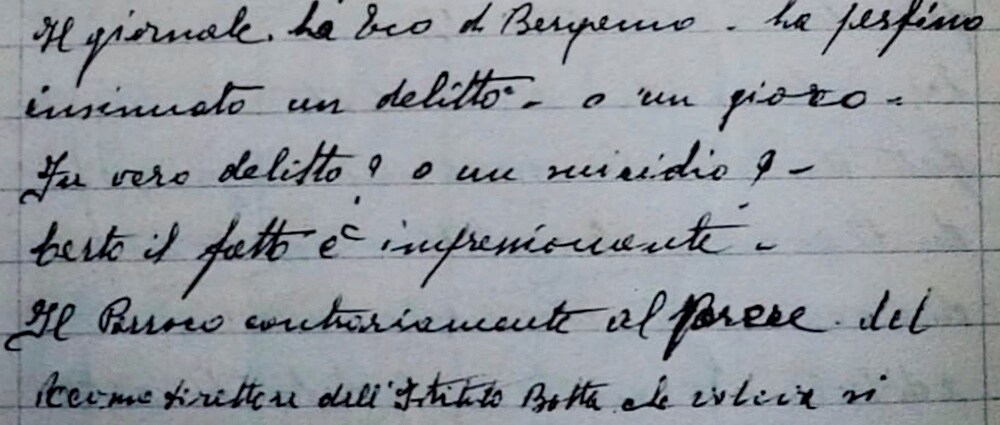 Il giornale. La Eco di Bergamo - ha perfino
insinuato un delitto - o un gioco -
Fu vero delitto? o un suicidio? -
Certo il fatto è impressionante -
Il Parroco contrariamente al parere del
Direttore dell'Istituto Botta che voleva si